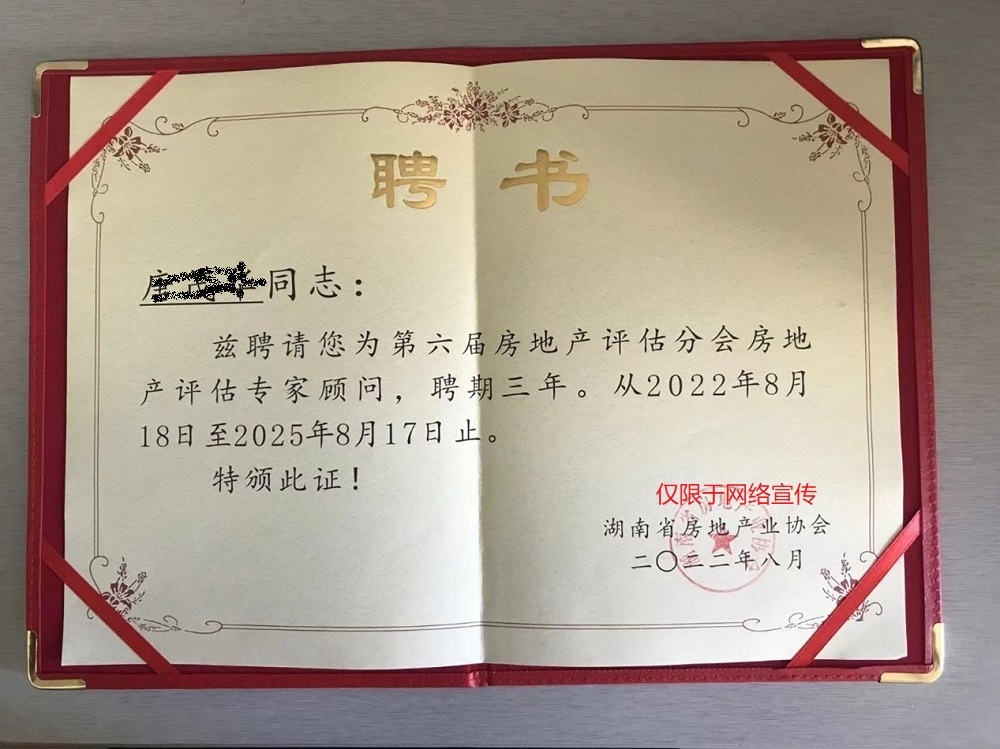 聘书
同志：
兹聘请您为第六届房地产评估分会房地
产评估专家顾问，聘期三年。从2022年8月
18日至2025年8月17日止。
特颁此证！
仅限于网络宣传
湖南省房地产业协会
二〇二二年八月